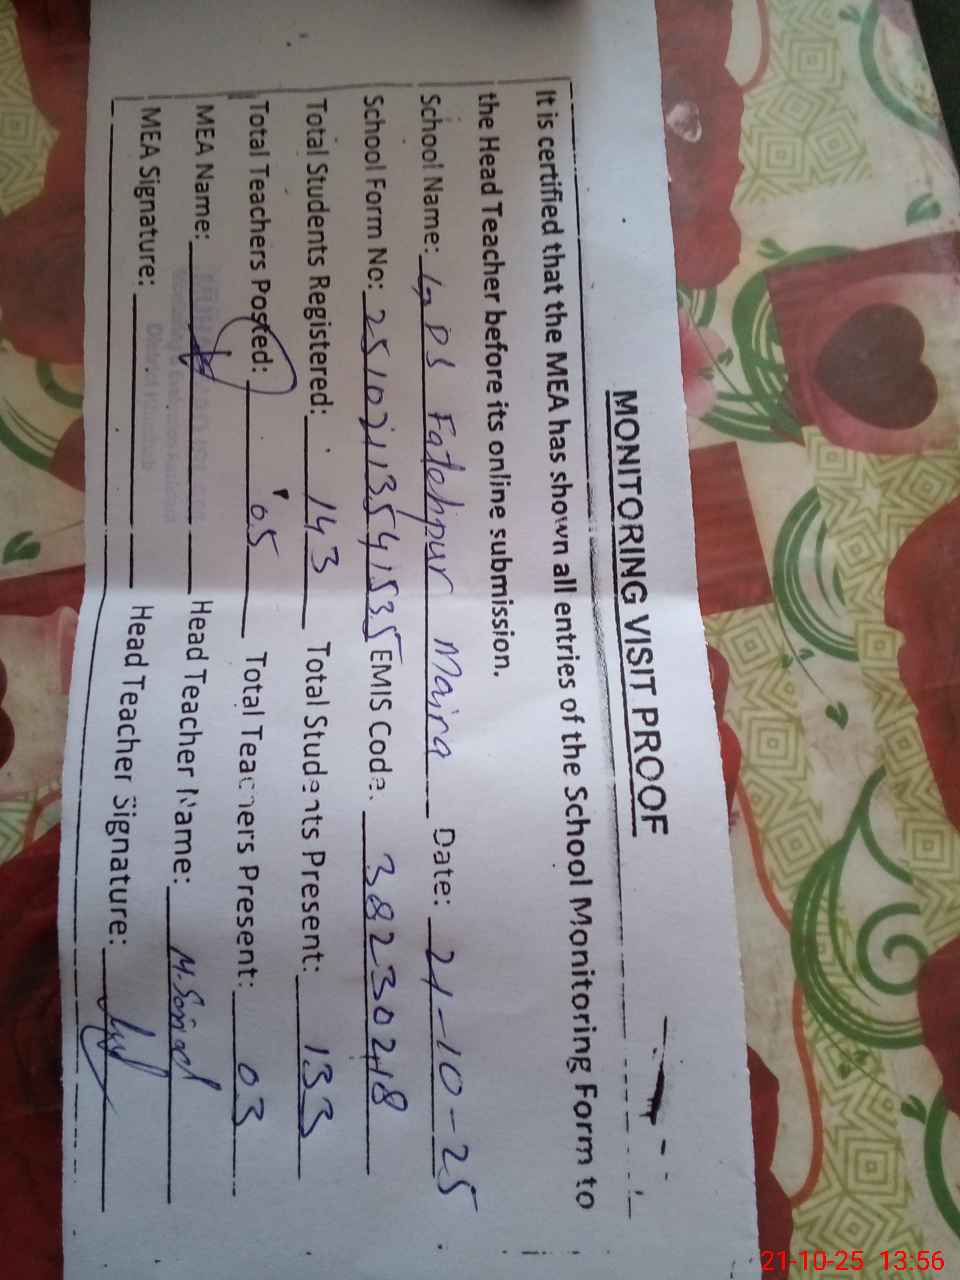 MONITORING VISIT PROOF
It is certified that the MEA has shown all entries of the School Monitoring Form to
the Head Teacher before its online submission.
School Name: GPS Fatehpur Maira Date: 21-10-25
School Form No: 25102113541535 EMIS Code: 38230218
Total Students Registered: 143 Total Students Present: 133
Total Teachers Posted: 05 Total Teachers Present: 03
MEA Name: Head Teacher Name: M.
MEA Signature: Head Teacher Signature:
21-10-25 13:56